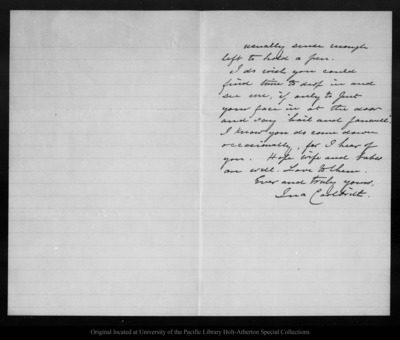 usually sense enough
left to hold a pen.
I do wish you could
find time to drop in and
see me, if only to put
your face in at the door
and say "hail and farewell."
I know you do come down
occasionally, for I hear of
you. Hope wife and babes
are well. Love to them.
Ever and truly yours,
Ina Coolbrith.
Original located at University of the Pacific Library Holt-Atherton Special Collections